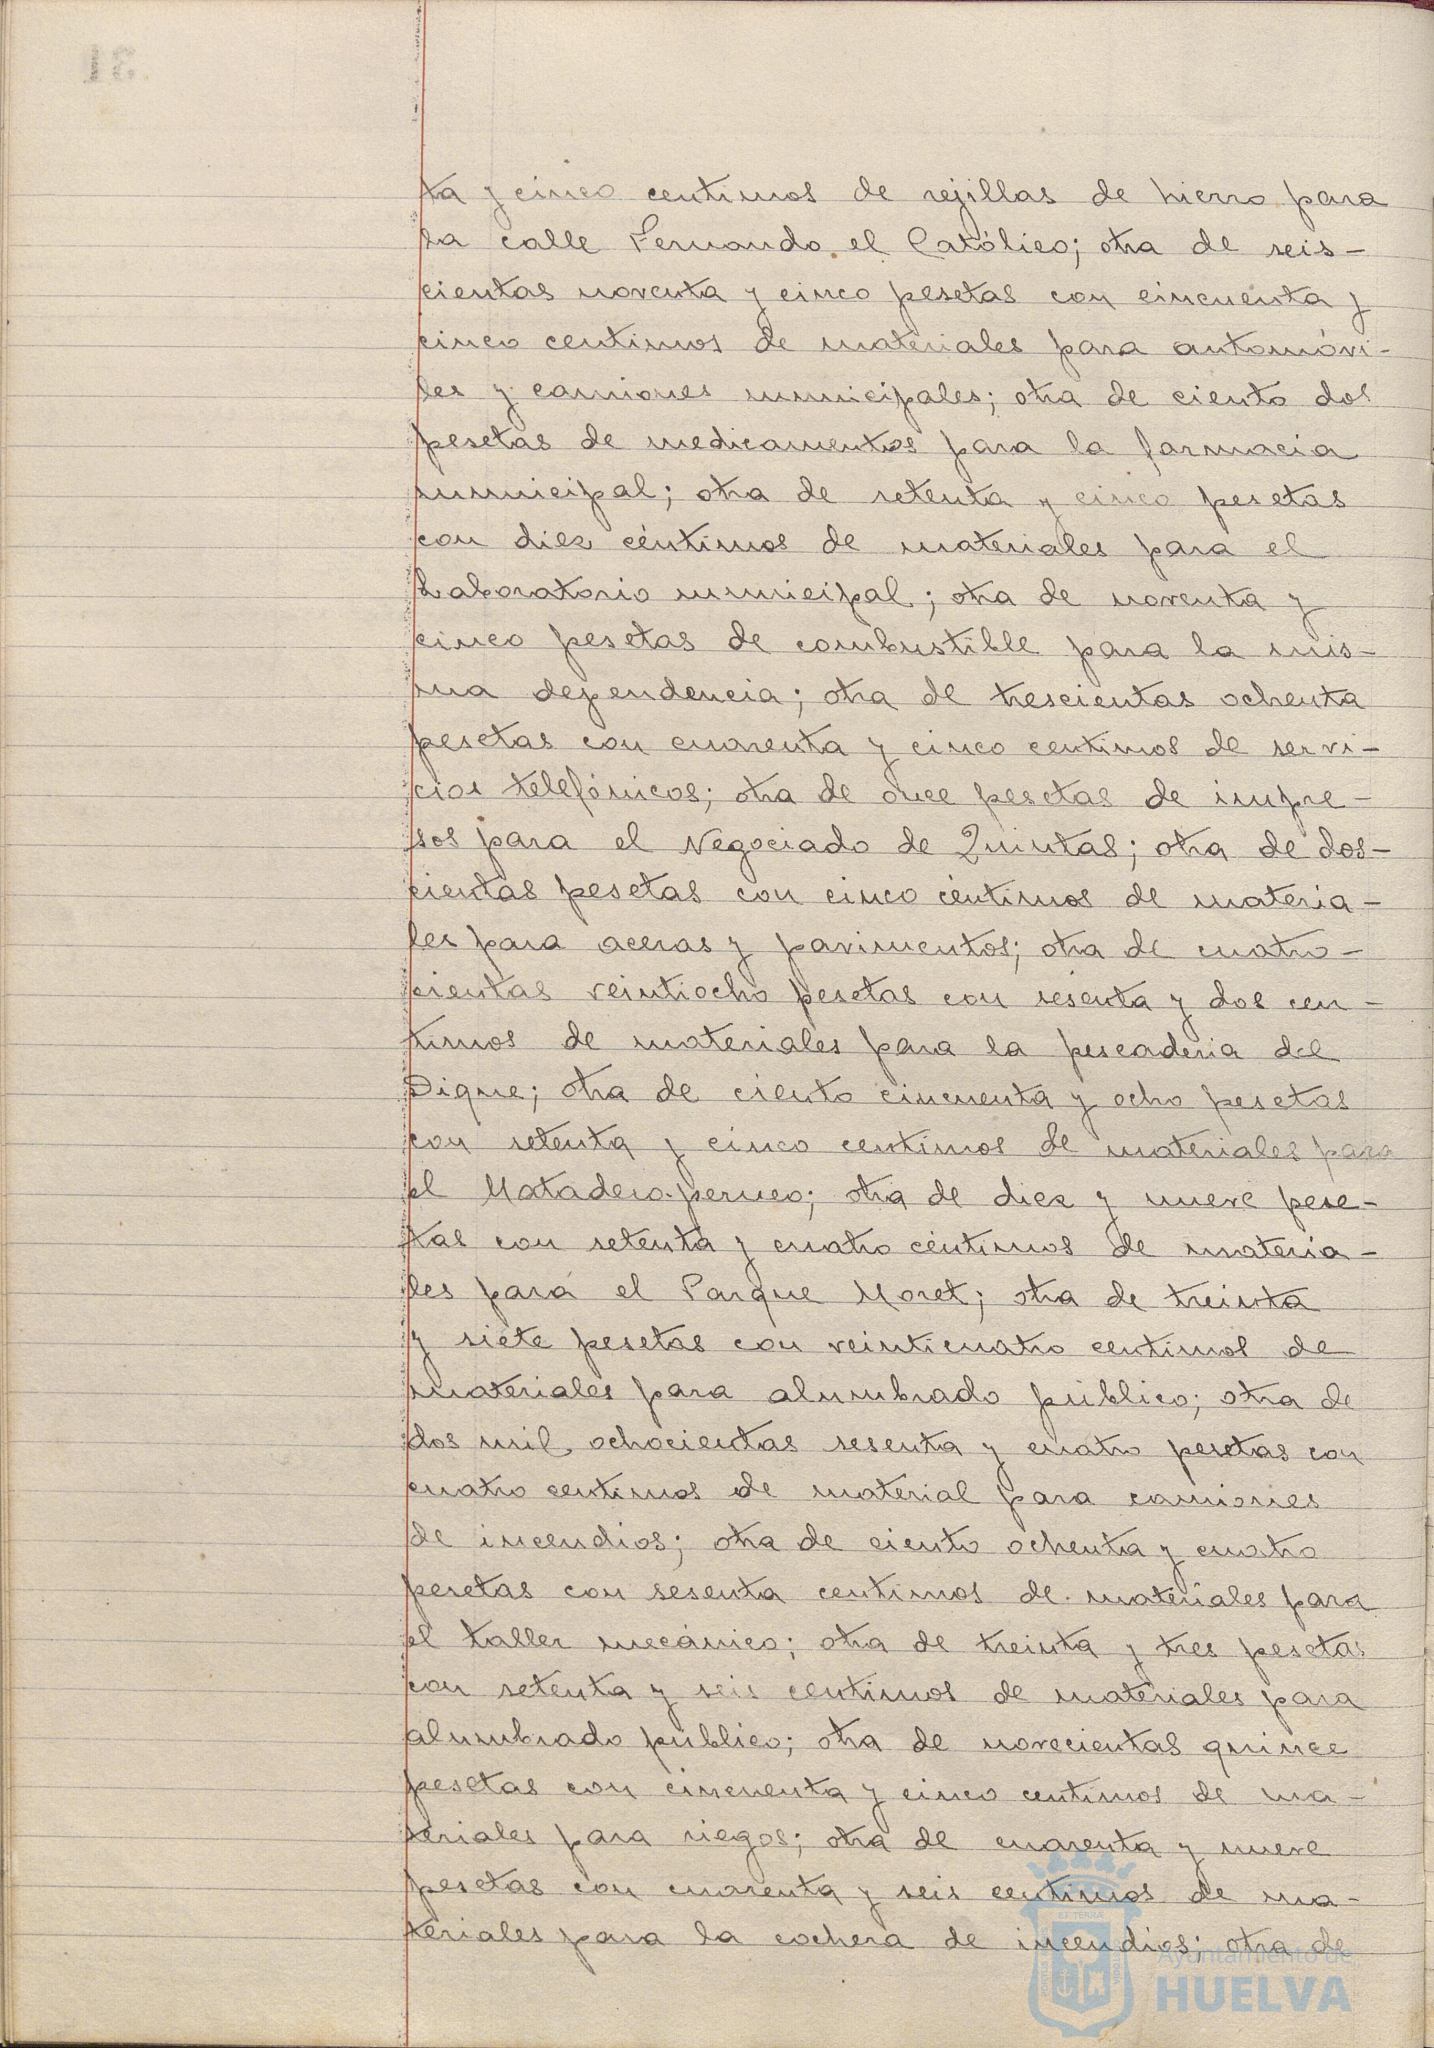 31
ta y cinco centimos de rejillas de hierro para
la calle Fernando el Católico; otra de seis-
cientas noventa y cinco pesetas con cincuenta y
cinco centimos de materiales para automóvi-
les y camiones municipales; otra de ciento dos
pesetas de medicamentos para la farmacia
municipal; otra de setenta y cinco pesetas
con diez céntimos de materiales para el
Laboratorio municipal; otra de noventa y
cinco pesetas de combustible para la mis-
ma dependencia; otra de trescientas ochenta
pesetas con cuarenta y cinco centimos de servi-
cios telefónicos; otra de once pesetas de impre-
sos para el Negociado de Quintas; otra de dos-
cientas pesetas con cinco céntimos de materia-
les para aceras y pavimentos; otra de cuatro-
cientas veintiocho pesetas con sesenta y dos cen-
timos de materiales para la pescaderia del
Dique; otra de ciento cincuenta y ocho pesetas
con setenta y cinco centimos de materiales para
el Matadero perneo; otra de diez y nueve pese-
tas con setenta y cuatro céntimos de materia-
les para el Parque Moret; otra de treinta
y siete pesetas con veinticuatro centimos de
materiales para alumbrado público; otra de
dos mil ochocientas sesenta y cuatro pesetas con
cuatro centimos de material para camiones
de incendios; otra de ciento ochenta y cuatro
pesetas con sesenta centimos de materiales para
el taller mecánico; otra de treinta y tres pesetas
con setenta y seis centimos de materiales para
alumbrado público; otra de novecientas quince
pesetas con cincuenta y cinco centimos de ma-
teriales para riegos; otra de cuarenta y nueve
pesetas con cuarenta y seis centimos de ma-
teriales para la cochera de incendios; otra de
Ayuntamiento de
HUELVA